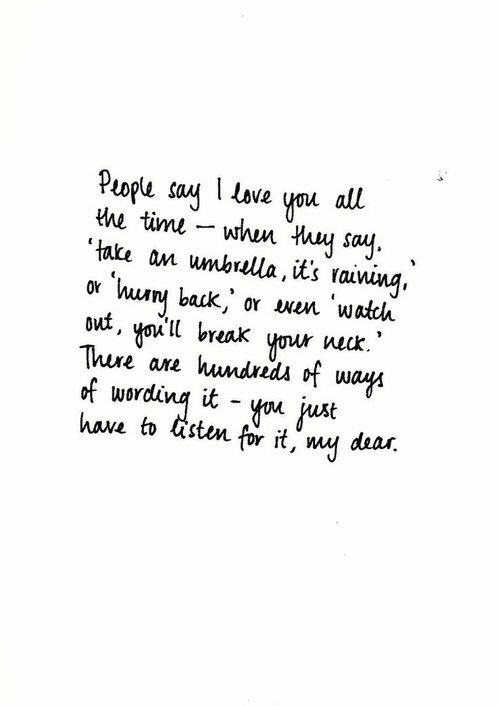 People say I love you all
the time – when they say,
'take an umbrella, it's raining,'
or 'hurry back,' or even 'watch
out, you'll break your neck.'
There are hundreds of ways
of wording it – you just
have to listen for it, my dear.